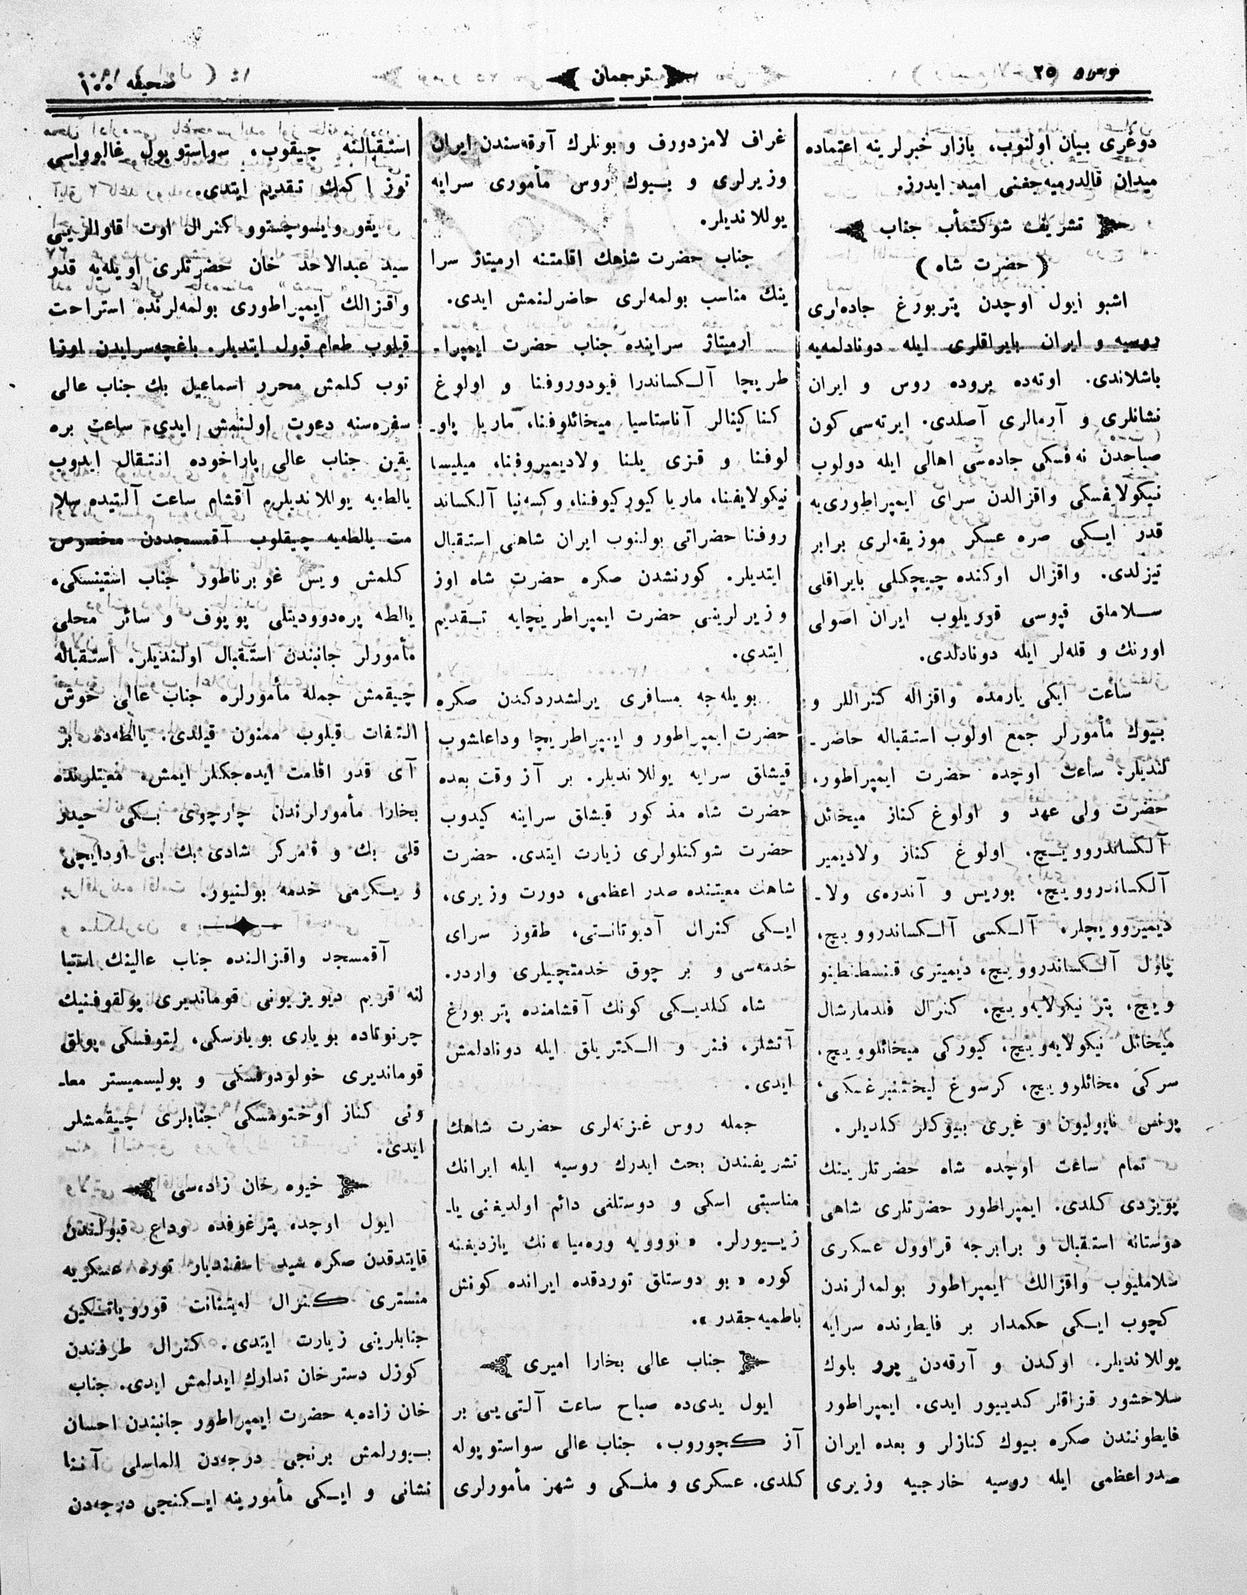 نومرو ٢٥
ترجمان
صحيفه ١٠٠
دوغری بيان اولنوب، بازار خبرلرينه اعتماده
ميدان قالدرميه‌جغنی اميد ايدرز.
تشريف شوكتمأب جناب
( حضرت شاه )
اشبو ايول اوچدن پتربورغ جاده‌لری
روسيه و ايران بايراقلری ايله دونادلمه‌يه
باشلاندی. اوته‌ده بروده روس و ايران
نشانلری و آرمالری آصلدی. ايرته‌سی كون
صباحدن نه‌فسكی جاده‌سی اهالی ايله دولوب
نيكولايفسكی واقزالدن سرای ايمپراطوری‌يه
قدر ايكی صره عسكر موزيقه‌لری برابر
تيزلدی. واقزال اوكنده چيچكلی بايراقلی
سلاملق قپوسی قوريلوب ايران اصولی
اورنك و قله‌لر ايله دونادلدی.
ساعت ايكی يارمده واقزاله كنراللر و
بيوك مأمورلر جمع اولوب استقباله حاضر-
لنديلر. ساعت اوچده حضرت ايمپراطور،
حضرت ولی عهد و اولوغ كناز ميخائل
آلكساندروويچ. اولوغ كناز ولاديمير
آلكساندروويچ، بوريس و آندره‌ی ولا-
ديميروويچلر، آلكسی آلكساندروويچ،
پاول آلكساندروويچ، ديميتری قنسطنطينو
ويچ، پتر نيكولايه‌ويچ، كنرال فلدمارشال
ميخائل نيكولايه‌ويچ، كيوركی ميخائلوويچ،
سركی مخائلوويچ، كرسوغ ليختنبرغسكی،
پرنس ناپوليون و غيری بيوكلر كلديلر.
تمام ساعت اوچده شاه حضرتلرينك
پويزدی كلدی. ايمپراطور حضرتلری شاهی
دوستانه استقبال و برابرجه قراوول عسكری
سلامليوب واقزالك ايمپراطور بولمه‌لرندن
كچوب ايكی حكمدار بر فايطونده سرايه
يوللانديلر. اوكدن و آرقه‌دن برر بلوك
سلاحشور قزاقلر كديیور ايدی. ايمپراطور
فايطونندن صكره بيوك كنازلر و بعده ايران
صدر اعظمی ايله روسيه خارجيه وزيری
غراف لامزدورف و بونلرك آرقه‌سندن ايران
وزيرلری و بيوك روس مأموری سرايه
يوللانديلر.
جناب حضرت شاهك اقامتنه ارميتاژ سرا
ينك مناسب بولمه‌لری حاضرلنمش ايدی.
ارميتاژ سراينده جناب حضرت ايمپرا-
طريچا آلكساندرا فيودوروفنا و اولوغ
كناكينالر آناستاسيا ميخائلوفنا، ماريا پاو-
لوفنا و قزی يلنا ولاديميروفنا، ميليسا
نيكولايفنا، ماريا كيوركيوفنا، وكسه‌نيا آلكساند
روفنا حضراتی بولنوب ايران شاهی استقبال
ايتديلر. كورنشدن صكره حضرت شاه اوز
وزيرلرينی حضرت ايمپراطريچايه تقديم
ايتدی.
بويله‌جه مسافری يرلشدردكدن صكره
حضرت ايمپراطور و ايمپراطريچا وداعلشوب
قيشلق سرايه يوللانديلر. بر آز وقت بعده
حضرت شاه مذكور قيشلق سراينه كيدوب
حضرت شوكتلولری زيارت ايتدی. حضرت
شاهك معيتنده صدر اعظمی، دورت وزيری،
ايكی كنرال آديوتانتی، طقوز سرای
خدمه‌سی و بر چوق خدمتچيلری واردر.
شاه كلديكی كونك آقشامنده پتربورغ
آتشلر، فنر و الكتريلق ايله دونادلمش
ايدی.
جمله روس غزته‌لری حضرت شاهك
تشريفندن بحث ايدرك روسيه ايله ايرانك
مناسبتی اسكی و دوستلغی دائم اولديغنی يا-
زيیورلر. «نوويه وره‌ميا»نك يازديغنه
كوره «بو دوستلق توردقده ايرانده كونش
باطميه‌جقدر».
جناب عالی بخارا اميری
ايول يدی‌ده صباح ساعت آلتی‌يی بر
آز كچوروب، جناب عالی سواستوپوله
كلدی. عسكری و ملكی و شهر مأمورلری
استقبالنه چيقوب، سواستوپول غالوواسی
توز اكمك تقديم ايتدی.
يقو ويسوچستوو كنرال اوت قاوالريی
سيد عبدالاحد خان حضرتلری اويله‌يه قدر
واقزالك ايمپراطوری بولمه‌لرنده استراحت
قيلوب طعام قبول ايتديلر. باغچه‌سرايدن اوزا
توب كلمش محرر اسماعيل بك جناب عالی
سفره‌سنه دعوت اولنمش ايدی. ساعت بره
يقين جناب عالی پاراخوده انتقال ايدوب
يالطه‌يه يوللانديلر. آقشام ساعت آلتيده سلا
مت يالطه‌يه چيقلوب آقمسجددن مخصوص
كلمش ويس غوبرناطور جناب استينسكی،
يالطه پره‌دوديتلی پوپوف و سائر محلی
مأمورلر جانبندن استقبال اولنديلر. استقباله
چيقمش جمله مأمورلره جناب عالی خوش
التفات قيلوب ممنون قيلدی. يالطه‌ده بر
آی قدر اقامت ايده‌جكلر ايمش. معيتلرنده
بخارا مأمورلرندن چارچوی بكی حيدر
قلی بك و قامركر شادی بك بی اودايچی
و يكرمی خدمه بولنيور.
آقمسجد واقزالنده جناب عالينك استقبا
لنه قريم ديويزيونی قوماندیری پولقوفنيك
چرنوتماده بوياری بويارسكی، ليتوفسكی پولق
قوماندیری خولودوفسكی و پوليسميستر معا-
ونی كناز اوختومسكی جنابلری چيقمشلر
ايدی.
خيوه خان زاده‌سی
ايول اوچده پترغوفده وداع قبولندن
قايتدقدن صكره سيد اسفنديار توره عسكريه
منستری كنرال لەيتنانت قوروپاتكين
جنابلرينی زيارت ايتدی. كنرال طرفندن
كوزل دسترخان تدارك ايدلمش ايدی. جناب
خان زاده‌يه حضرت ايمپراطور جانبندن احسان
بيورلمش برنجی درجه‌دن الماسلی آننا
نشانی و ايكی مأمورينه ايكنجی درجه‌دن